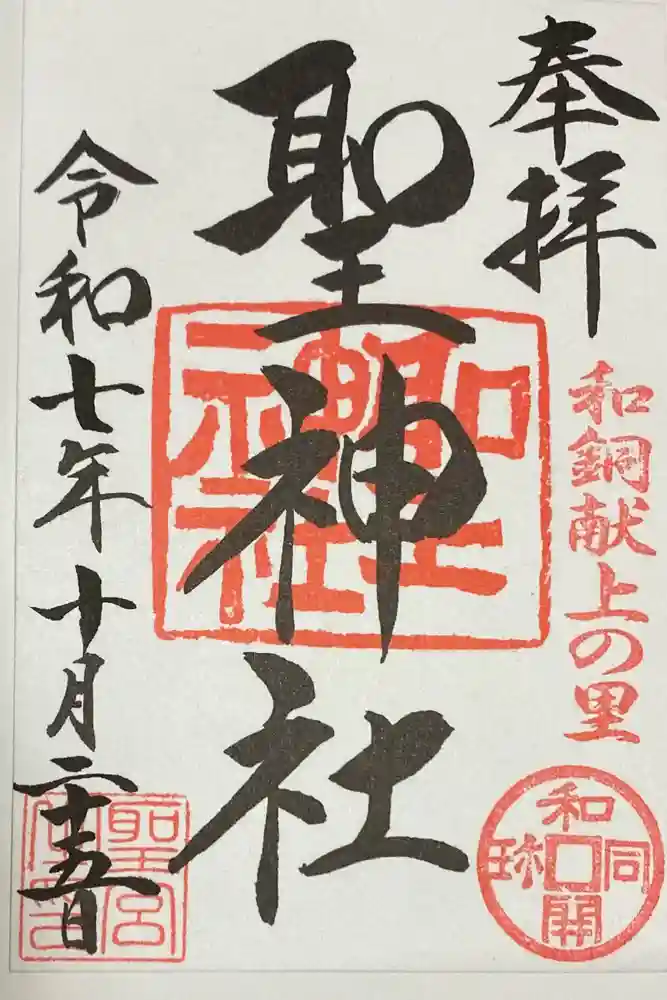 奉拝
和銅献上の里
和同開珎
聖神社
聖神社
令和七年十月二十五日